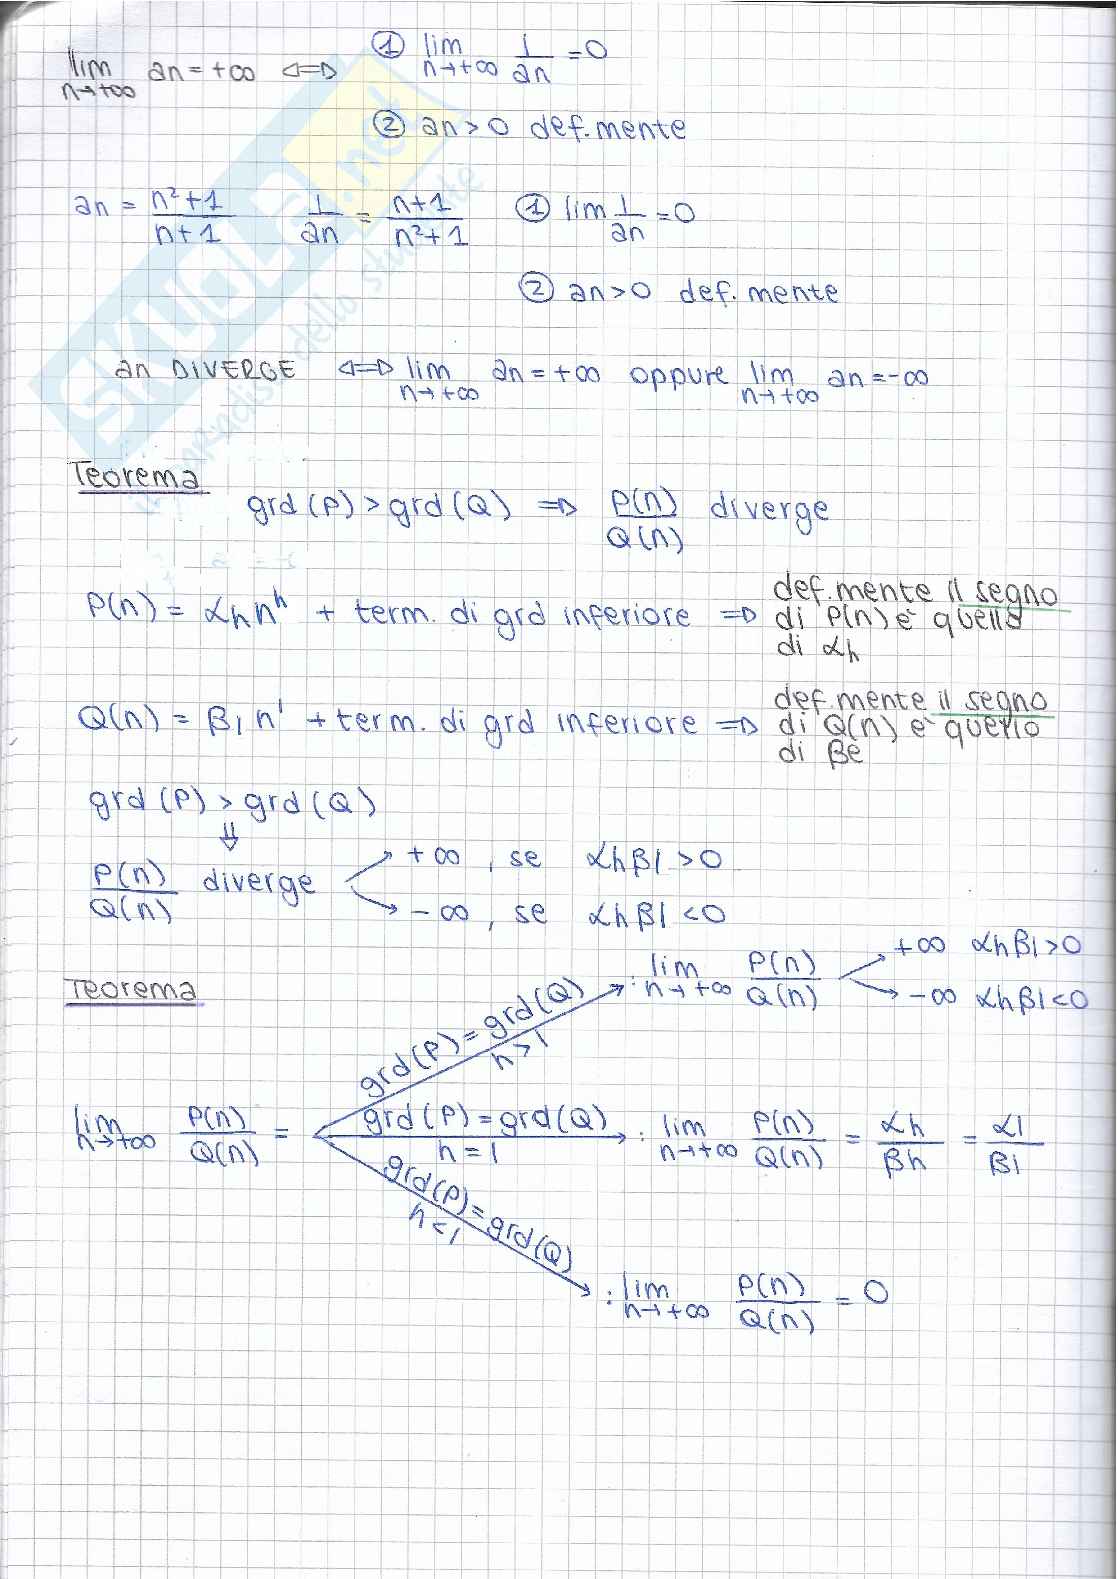 lim n→+∞ an = +∞ ⇔ ① lim n→+∞ 1/an = 0
② an > 0 def.mente
an = n²+1/n+1 1/an = n+1/n²+1 ① lim 1/an = 0
② an > 0 def.mente
an DIVERGE ⇔ lim n→+∞ an = +∞ oppure lim n→+∞ an = -∞
Teorema
grd(P) > grd(Q) ⇒ P(n)/Q(n) diverge
P(n) = αh nʰ + term. di grd inferiore ⇒ def.mente il segno
di P(n) è quello
di αh
Q(n) = βl nˡ + term. di grd inferiore ⇒ def.mente il segno
di Q(n) è quello
di βe
grd(P) > grd(Q)
⇓
P(n)/Q(n) diverge
+∞, se αh βl > 0
-∞, se αh βl < 0
Teorema
lim n→+∞ P(n)/Q(n) =
grd(P) = grd(Q)
h > l
: lim n→+∞ P(n)/Q(n)
+∞ αh βl > 0
-∞ αh βl < 0
grd(P) = grd(Q)
h = l
: lim n→+∞ P(n)/Q(n) = αh/βh = αl/βl
grd(P) = grd(Q)
h < l
: lim n→+∞ P(n)/Q(n) = 0
SKUOLA.net
il paradiso dello studente